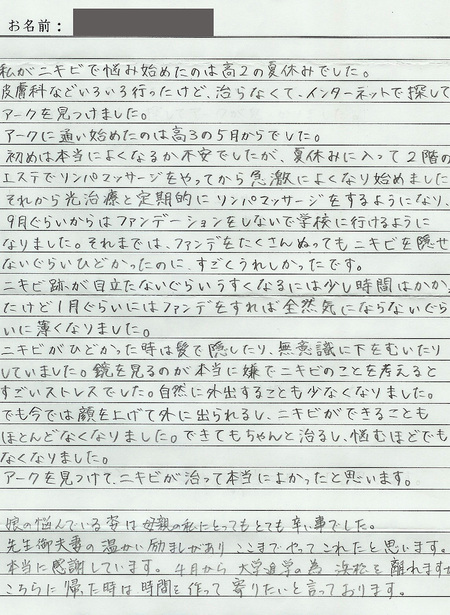 お名前：
私がニキビで悩み始めたのは高2の夏休みでした。
皮膚科などいろいろ行ったけど、治らなくて、インターネットで探して
アークを見つけました。
アークに通い始めたのは高3の5月からでした。
初めは本当によくなるか不安でしたが、夏休みに入って2階の
エステでリンパマッサージをやってから急激によくなり始めました
それから光治療と定期的にリンパマッサージをするようになり、
9月ぐらいからはファンデーションをしないで学校に行けるように
なりました。それまでは、ファンデをたくさんぬってもニキビを隠せ
ないぐらいひどかったのに、すごくうれしかったです。
ニキビ跡が目立たないぐらいうすくなるには少し時間はかかっ
たけど1月ぐらいにはファンデをすれば全然気にならないぐら
いに薄くなりました。
ニキビがひどかった時は髪で隠したり、無意識に下をむいたり
していました。鏡を見るのが本当に嫌でニキビのことを考えると
すごいストレスでした。自然に外出することも少なくなりました。
でも今では顔を上げて外に出られるし、ニキビができることも
ほとんどなくなりました。できてもちゃんと治るし、悩むほどでも
なくなりました。
アークを見つけて、ニキビが治って本当によかったと思います。
娘の悩んでいる姿は母親の私にとってもとても辛い事でした。
先生御夫妻の温かい励ましがありここまでやってこれたと思います。
本当に感謝しています。4月から大学進学の為浜松を離れますが
こちらに帰った時は時間を作って寄りたいと言っております。